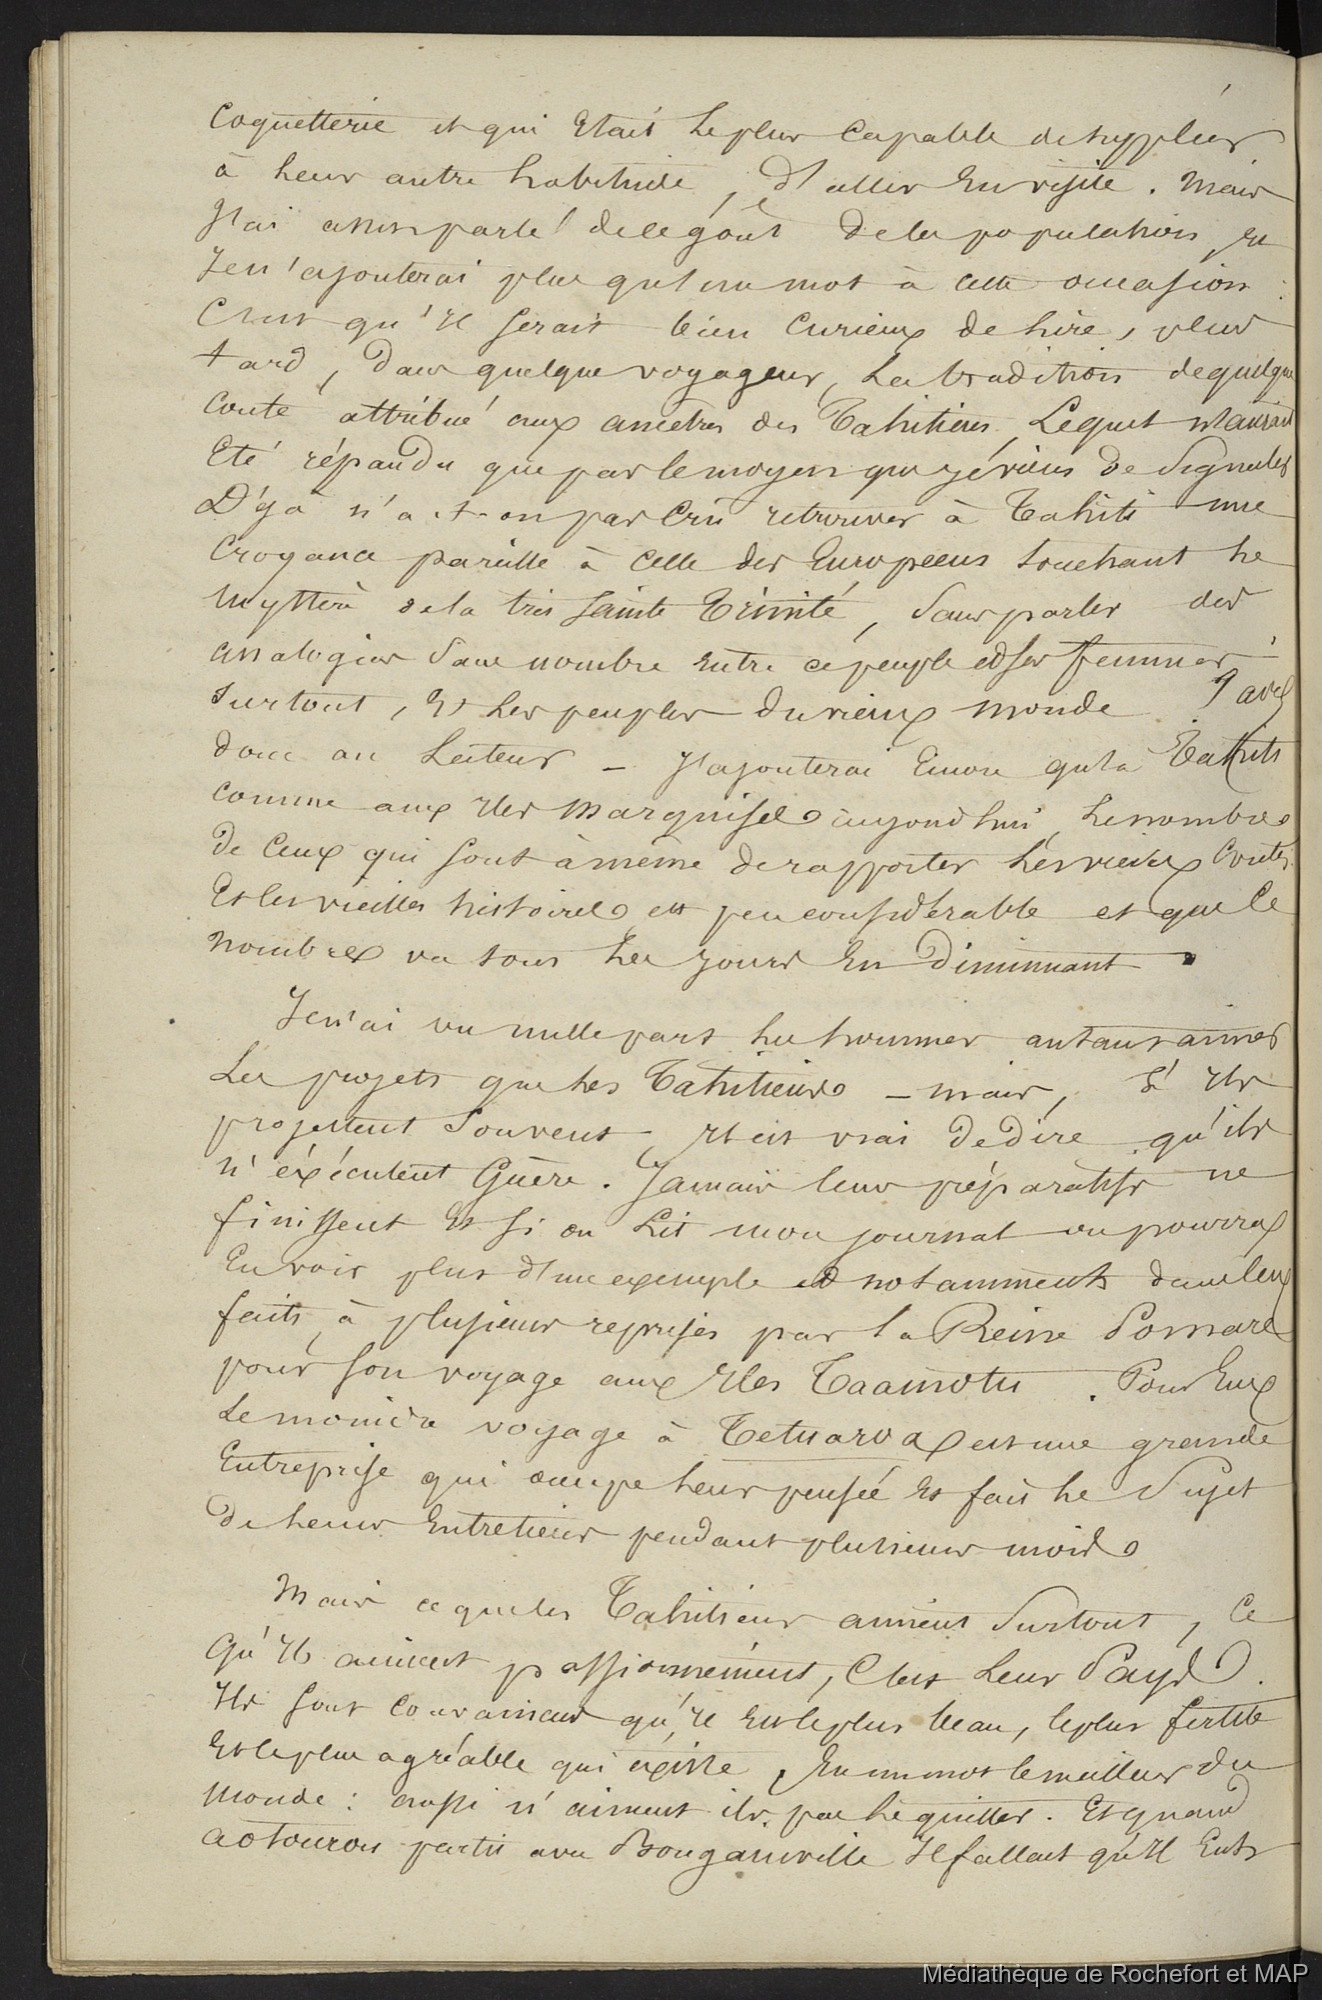 Coquetterie et qui Etait le plus Capable de suppléer
à leur autre habitude, d'aller En visite. Mais
J'ai assez parlé de ce goût de la population, et
Je n'ajouterai plus qu'un mot à cette occasion :
C'est qu'il serait bien Curieux de lire, plus
tard, dans quelque voyageur, la tradition de quelque
conte attribué aux ancêtres des Tahitiens, Lequel n'aurait
Eté répandu que par le moyen que je viens de signaler
Déjà n'a-t-on pas Crû retrouver à Tahiti une
Croyance pareille à Celle des Européens touchant le
Mystère de la très Sainte Trinité, sans parler des
analogies sans nombre entre ce peuple et ses femmes
surtout, Et les peuples du vieux monde. Avis
donc au Lecteur _ J'ajouterai Encore qu'à Tahiti
comme aux Iles Marquises aujourd'hui, le nombre
de Ceux qui sont à même de rapporter les vieux Contes
Et les vieilles histoires est peu considérable et que ce
nombre va tous les jours En Diminuant.
Je n'ai vu nulle part les hommes autant aimer
Les projets que les Tahitiens _ mais, s'Ils
projettent Souvent, Il est vrai De dire qu'ils
n'éxécutent Guère. Jamais leurs préparatifs ne
finissent Et si on Lit mon journal on pourra
En voir plus d'un exemple et notamment dans ceux
faits à plusieurs reprises par la Reine Pomaré
pour son voyage aux Iles Taamotu. Pour Eux
Le moindre voyage à Tetuaroa est une grande
Entreprise qui occupe leur pensée Et fait le Sujet
de leurs Entretiens pendant plusieurs mois
Mais ce que les Tahitiens aiment Surtout, Ce
Qu'Ils aiment passionnément, C'est Leur Pays.
Ils sont Convaincus qu'il Est le plus beau, le plus fertile
Et le plus agréable qui existe, En un mot le meilleur du
Monde : aussi n'aiment ils pas le quitter. Et quand
Aotourou partit avec Bougainville Il fallait qu'Il Eut
Médiathèque de Rochefort et MAP